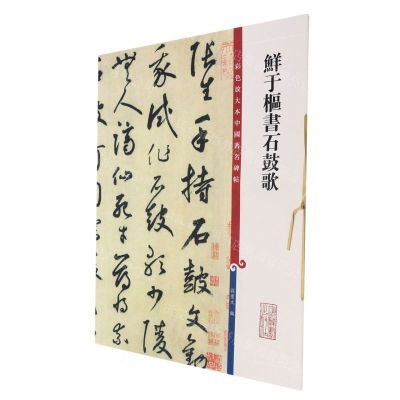 鮮于樞書石鼓歌
彩色放大本中國著名碑帖
孫寶文 編
張生手持石鼓文勸
我試作石鼓歌少陵
無人謫仙死才薄將奈